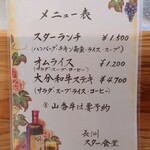 メニュー表
スターランチ ¥1,500
(ハンバーグ・チキン南蛮・ライス・スープ)
オムライス ¥1,200
(サラダ・スープ・コーヒー)
大分和牛ステーキ ¥4,700
(サラダ・スープ・ライス・コーヒー)
スター食堂